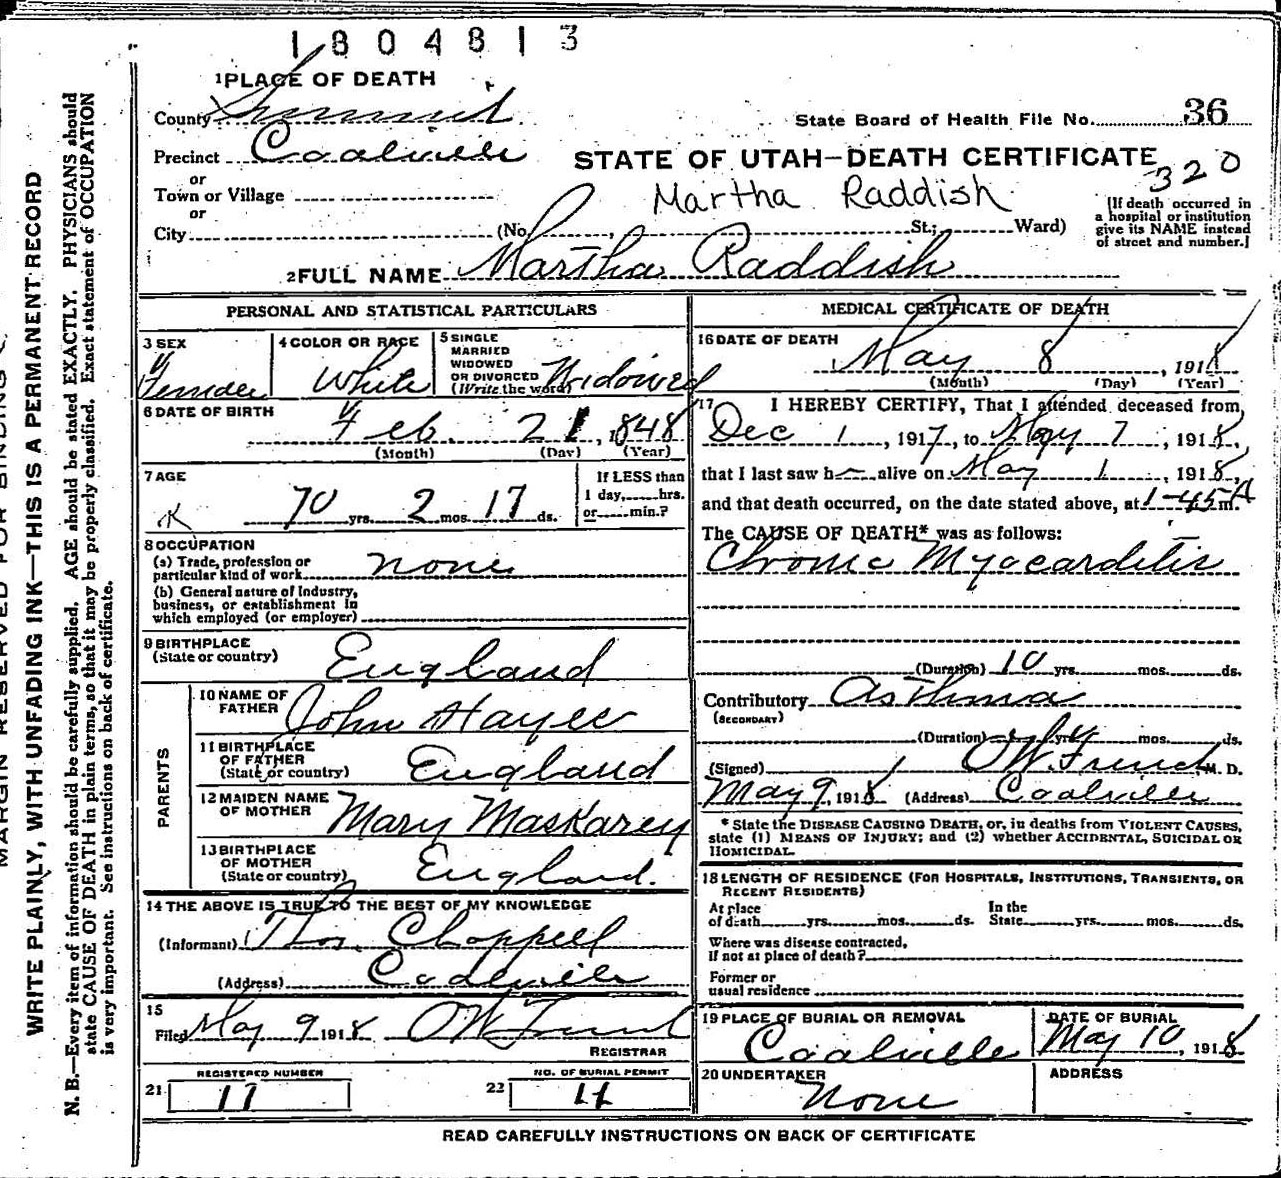 1804813
1 PLACE OF DEATH
County Summit
State Board of Health File No. 36
Precinct Coalville
STATE OF UTAH—DEATH CERTIFICATE
320
or
Town or Village
Martha Raddish
or
City (No. , St.; Ward)
[If death occurred in
a hospital or institution
give its NAME instead
of street and number.]
2 FULL NAME Martha Raddish
PERSONAL AND STATISTICAL PARTICULARS
3 SEX
Female
4 COLOR OR RACE
White
5 SINGLE
MARRIED
WIDOWED
OR DIVORCED
(Write the word) Widowed
6 DATE OF BIRTH
Feb. 21, 1848
(Month) (Day) (Year)
7 AGE
70 yrs. 2 mos. 17 ds.
If LESS than
1 day, hrs.
or min.?
8 OCCUPATION
(a) Trade, profession or
particular kind of work none
(b) General nature of Industry,
business, or establishment in
which employed (or employer)
9 BIRTHPLACE
(State or country) England
PARENTS
10 NAME OF
FATHER John
11 BIRTHPLACE
OF FATHER
(State or country) England
12 MAIDEN NAME
OF MOTHER Mary Maskarey
13 BIRTHPLACE
OF MOTHER
(State or country) England.
14 THE ABOVE IS TRUE TO THE BEST OF MY KNOWLEDGE
(Informant) Thos. Chappell
(Address) Coalville
15
Filed May 9 1918 OW French
REGISTRAR
REGISTERED NUMBER
21 11
NO. OF BURIAL PERMIT
22 11
MEDICAL CERTIFICATE OF DEATH
16 DATE OF DEATH
May 8, 1918
(Month) (Day) (Year)
17 I HEREBY CERTIFY, That I attended deceased from
Dec 1, 1917, to May 7, 1918,
that I last saw h alive on May 1, 1918,
and that death occurred, on the date stated above, at 1-45 A m.
The CAUSE OF DEATH* was as follows:
Chronic Myocarditis
(Duration) 10 yrs. mos. ds.
Contributory Asthma
(SECONDARY)
(Duration) yrs. mos. ds.
(Signed) OW. French, M. D.
May 9, 1918 (Address) Coalville
* State the DISEASE CAUSING DEATH, or, in deaths from VIOLENT CAUSES,
state (1) MEANS OF INJURY; and (2) whether ACCIDENTAL, SUICIDAL OR
HOMICIDAL.
18 LENGTH OF RESIDENCE (FOR HOSPITALS, INSTITUTIONS, TRANSIENTS, OR
RECENT RESIDENTS)
At place
of death yrs. mos. ds.
In the
State yrs. mos. ds.
Where was disease contracted,
if not at place of death?
Former or
usual residence
19 PLACE OF BURIAL OR REMOVAL
Coalville
DATE OF BURIAL
May 10, 1918
20 UNDERTAKER
None
ADDRESS
READ CAREFULLY INSTRUCTIONS ON BACK OF CERTIFICATE
MARGIN RESERVED FOR BINDING
WRITE PLAINLY, WITH UNFADING INK—THIS IS A PERMANENT RECORD
N. B.—Every item of information should be carefully supplied. AGE should be stated EXACTLY. PHYSICIANS should
state CAUSE OF DEATH in plain terms, so that it may be properly classified. Exact statement of OCCUPATION
is very important. See instructions on back of certificate.